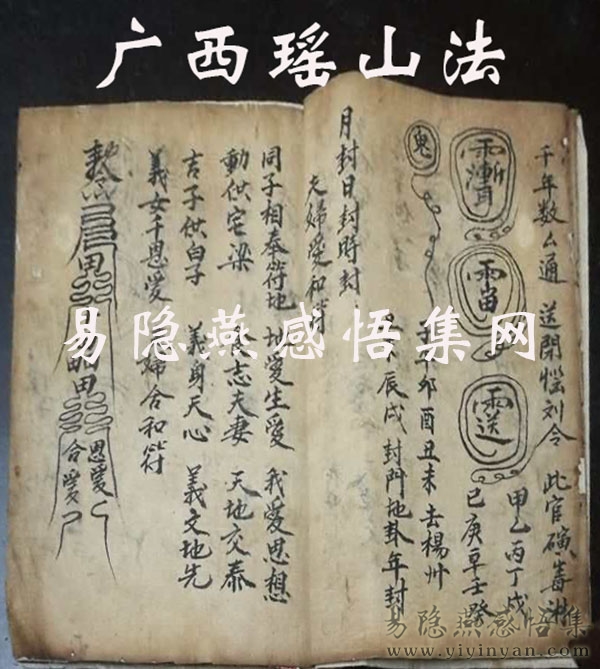 广西瑶山法
千年数么通 送閉惱刘令 此官磺毒
甲乙丙丁戊
己庚辛壬癸
雷
送
鬼
午卯酉丑未去楊州
辰戌封門地卦年封
月封日封時封
夫婦愛和符
同子相奉符地 地愛生愛 我愛思想
動供宅梁 志夫妻 天地交泰
吉子供白子 義身天心 義文地先
義女千恩愛 婦合和符
敕
恩愛
合愛
易隐燕感悟集网
易隐燕感悟集
www.yiyinyan.com